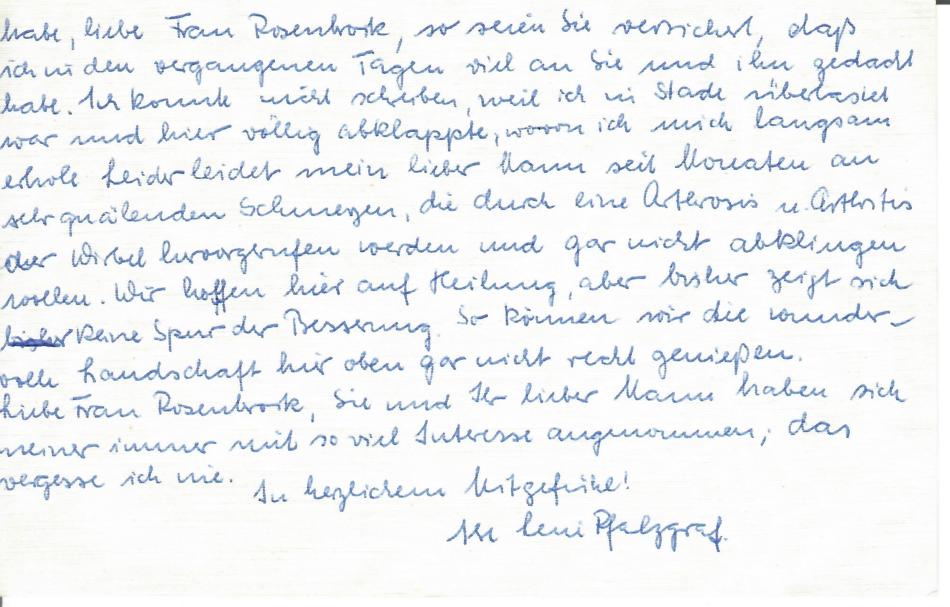 habe, liebe Frau Rosenbrock, so seien Sie versichert, daß
ich in den vergangenen Tagen viel an Sie und ihn gedacht
habe. Ich konnte nicht schreiben, weil ich in Stade überlastet
war und hier völlig abklappte, wovon ich mich langsam
erhole. Leider leidet mein lieber Mann seit Monaten an
sehr quälenden Schmerzen, die durch eine Arthrosis u. Arthritis
der Wirbel hervorgerufen werden und gar nicht abklingen
wollen. Wir hoffen hier auf Heilung, aber bisher zeigt sich
keine Spur der Besserung. So können wir die wunder-
volle Landschaft hier oben gar nicht recht genießen.
Liebe Frau Rosenbrock, Sie und Ihr lieber Mann haben sich
meiner immer mit so viel Interesse angenommen; das
vergesse ich nie.
In herzlichem Mitgefühl!
Ihre Leni Pfalzgraf.